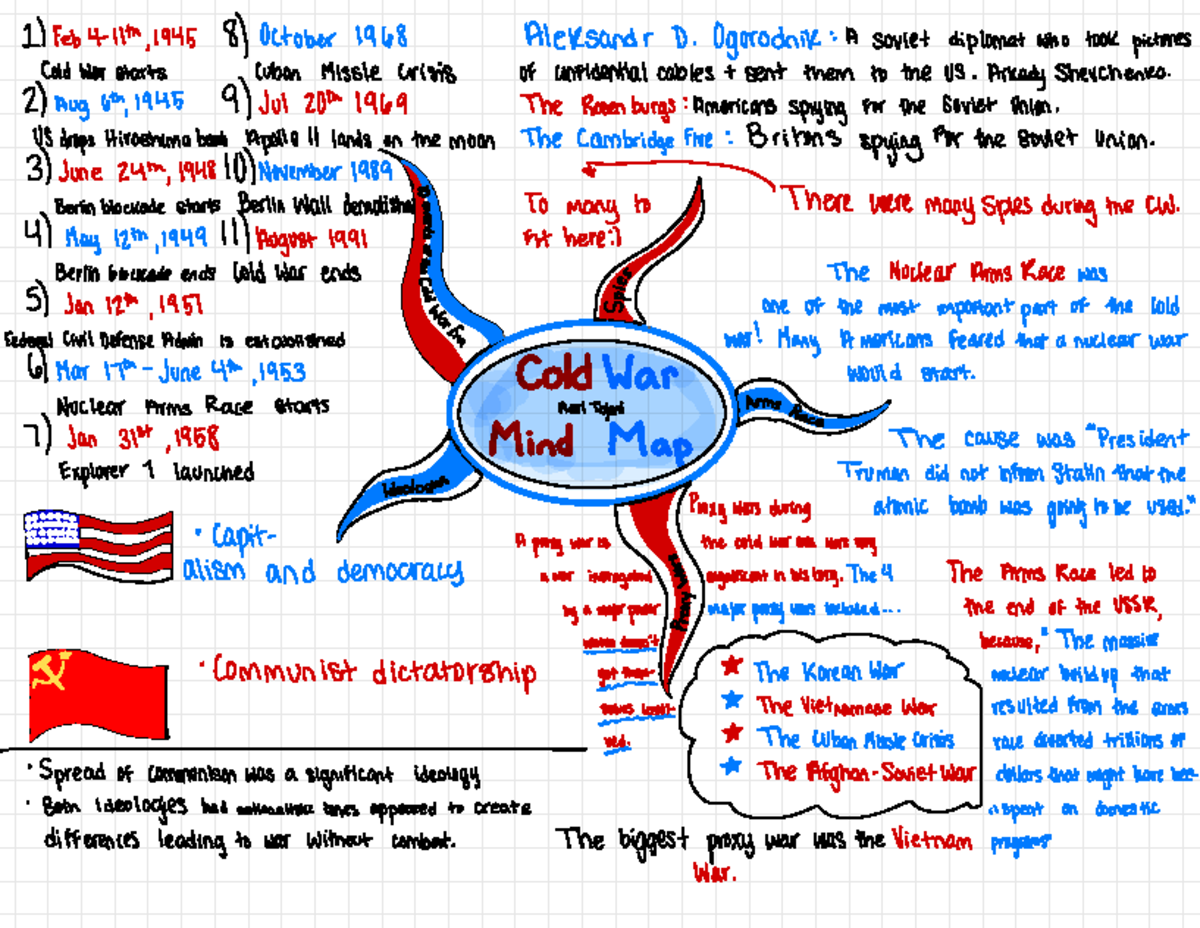 1) Feb 4-11th, 1945
Cold War starts
2) Aug 6th, 1945
US drops Hiroshima bomb
3) June 24th, 1948
Berlin blockade starts
4) May 12th, 1949
Berlin blockade ends
5) Jan 12th, 1951
Federal Civil Defense Admin is established
6) Mar 17th - June 4th, 1953
Nuclear Arms Race starts
7) Jan 31st, 1958
Explorer 1 launched
8) October 1968
Cuban Missle Crisis
9) Jul 20th 1969
Apollo 11 lands on the moon
10) November 1989
Berlin Wall demolished
11) August 1991
Cold War ends
Aleksandr D. Ogorodnik: A soviet diplomat who took pictures
of confidential cables + sent them to the US. Arkady Shevchenko.
The Rosenburgs: Americans spying for the Soviet Union.
The Cambridge Five: Britons spying for the Soviet Union.
To many to
fit here:)
There were many Spies during the CW.
Cold War Era
Spies
The Nuclear Arms Race was
one of the most important part of the Cold
War! Many Americans feared that a nuclear war
would start.
Cold War
Mind Map
Arms Race
The cause was "President
Truman did not inform Stalin that the
atomic bomb was going to be used."
Ideologies
• Capit-
alism and democracy
• Communist dictatorship
• Spread of communism was a significant ideology
• Both ideologies had nationalistic tones appeared to create
differences leading to war without combat.
Proxy Wars
A proxy war is
a war instigated
by a major power
which doesn't
get them-
selves invol-
ved.
Proxy wars during
the cold war era were very
significant in history. The 4
major proxy wars included...
The Korean War
The Vietnamese War
The Cuban Missle Crisis
The Afghan-Soviet War
The biggest proxy war was the Vietnam
War.
The Arms Race led to
the end of the USSR,
because," The massive
nuclear buildup that
resulted from the arms
race diverted trillions of
dollars that might have bee-
n spent on domestic
programs"